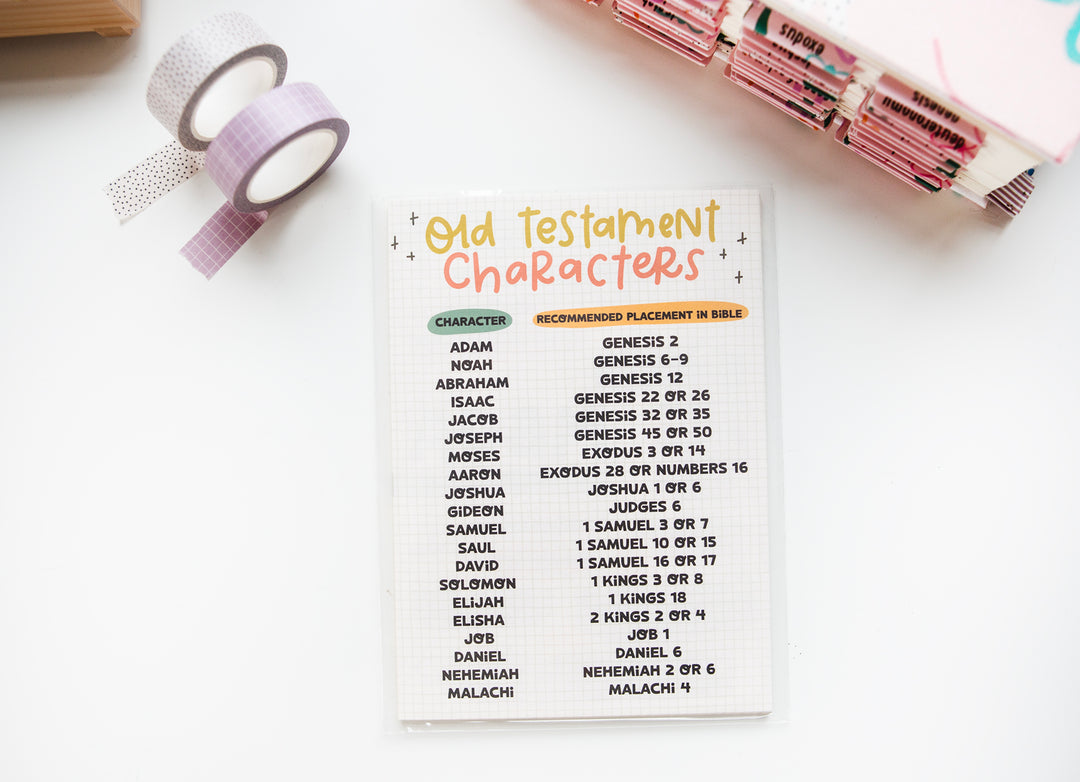 exodus
genesis
deuteronomy
Old Testament
Characters
CHARACTER RECOMMENDED PLACEMENT IN BIBLE
ADAM GENESIS 2
NOAH GENESIS 6-9
ABRAHAM GENESIS 12
ISAAC GENESIS 22 OR 26
JACOB GENESIS 32 OR 35
JOSEPH GENESIS 45 OR 50
MOSES EXODUS 3 OR 14
AARON EXODUS 28 OR NUMBERS 16
JOSHUA JOSHUA 1 OR 6
GIDEON JUDGES 6
SAMUEL 1 SAMUEL 3 OR 7
SAUL 1 SAMUEL 10 OR 15
DAVID 1 SAMUEL 16 OR 17
SOLOMON 1 KINGS 3 OR 8
ELIJAH 1 KINGS 18
ELISHA 2 KINGS 2 OR 4
JOB JOB 1
DANIEL DANIEL 6
NEHEMIAH NEHEMIAH 2 OR 6
MALACHI MALACHI 4